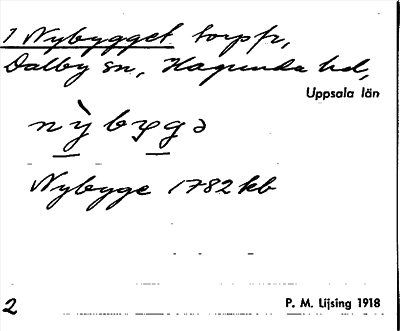 1 Nybygget torp fr,
Dalby sn, Hagunda hd,
Uppsala län
nỳbygə
Nybyge 1782 kb
2
P. M. Lijsing 1918